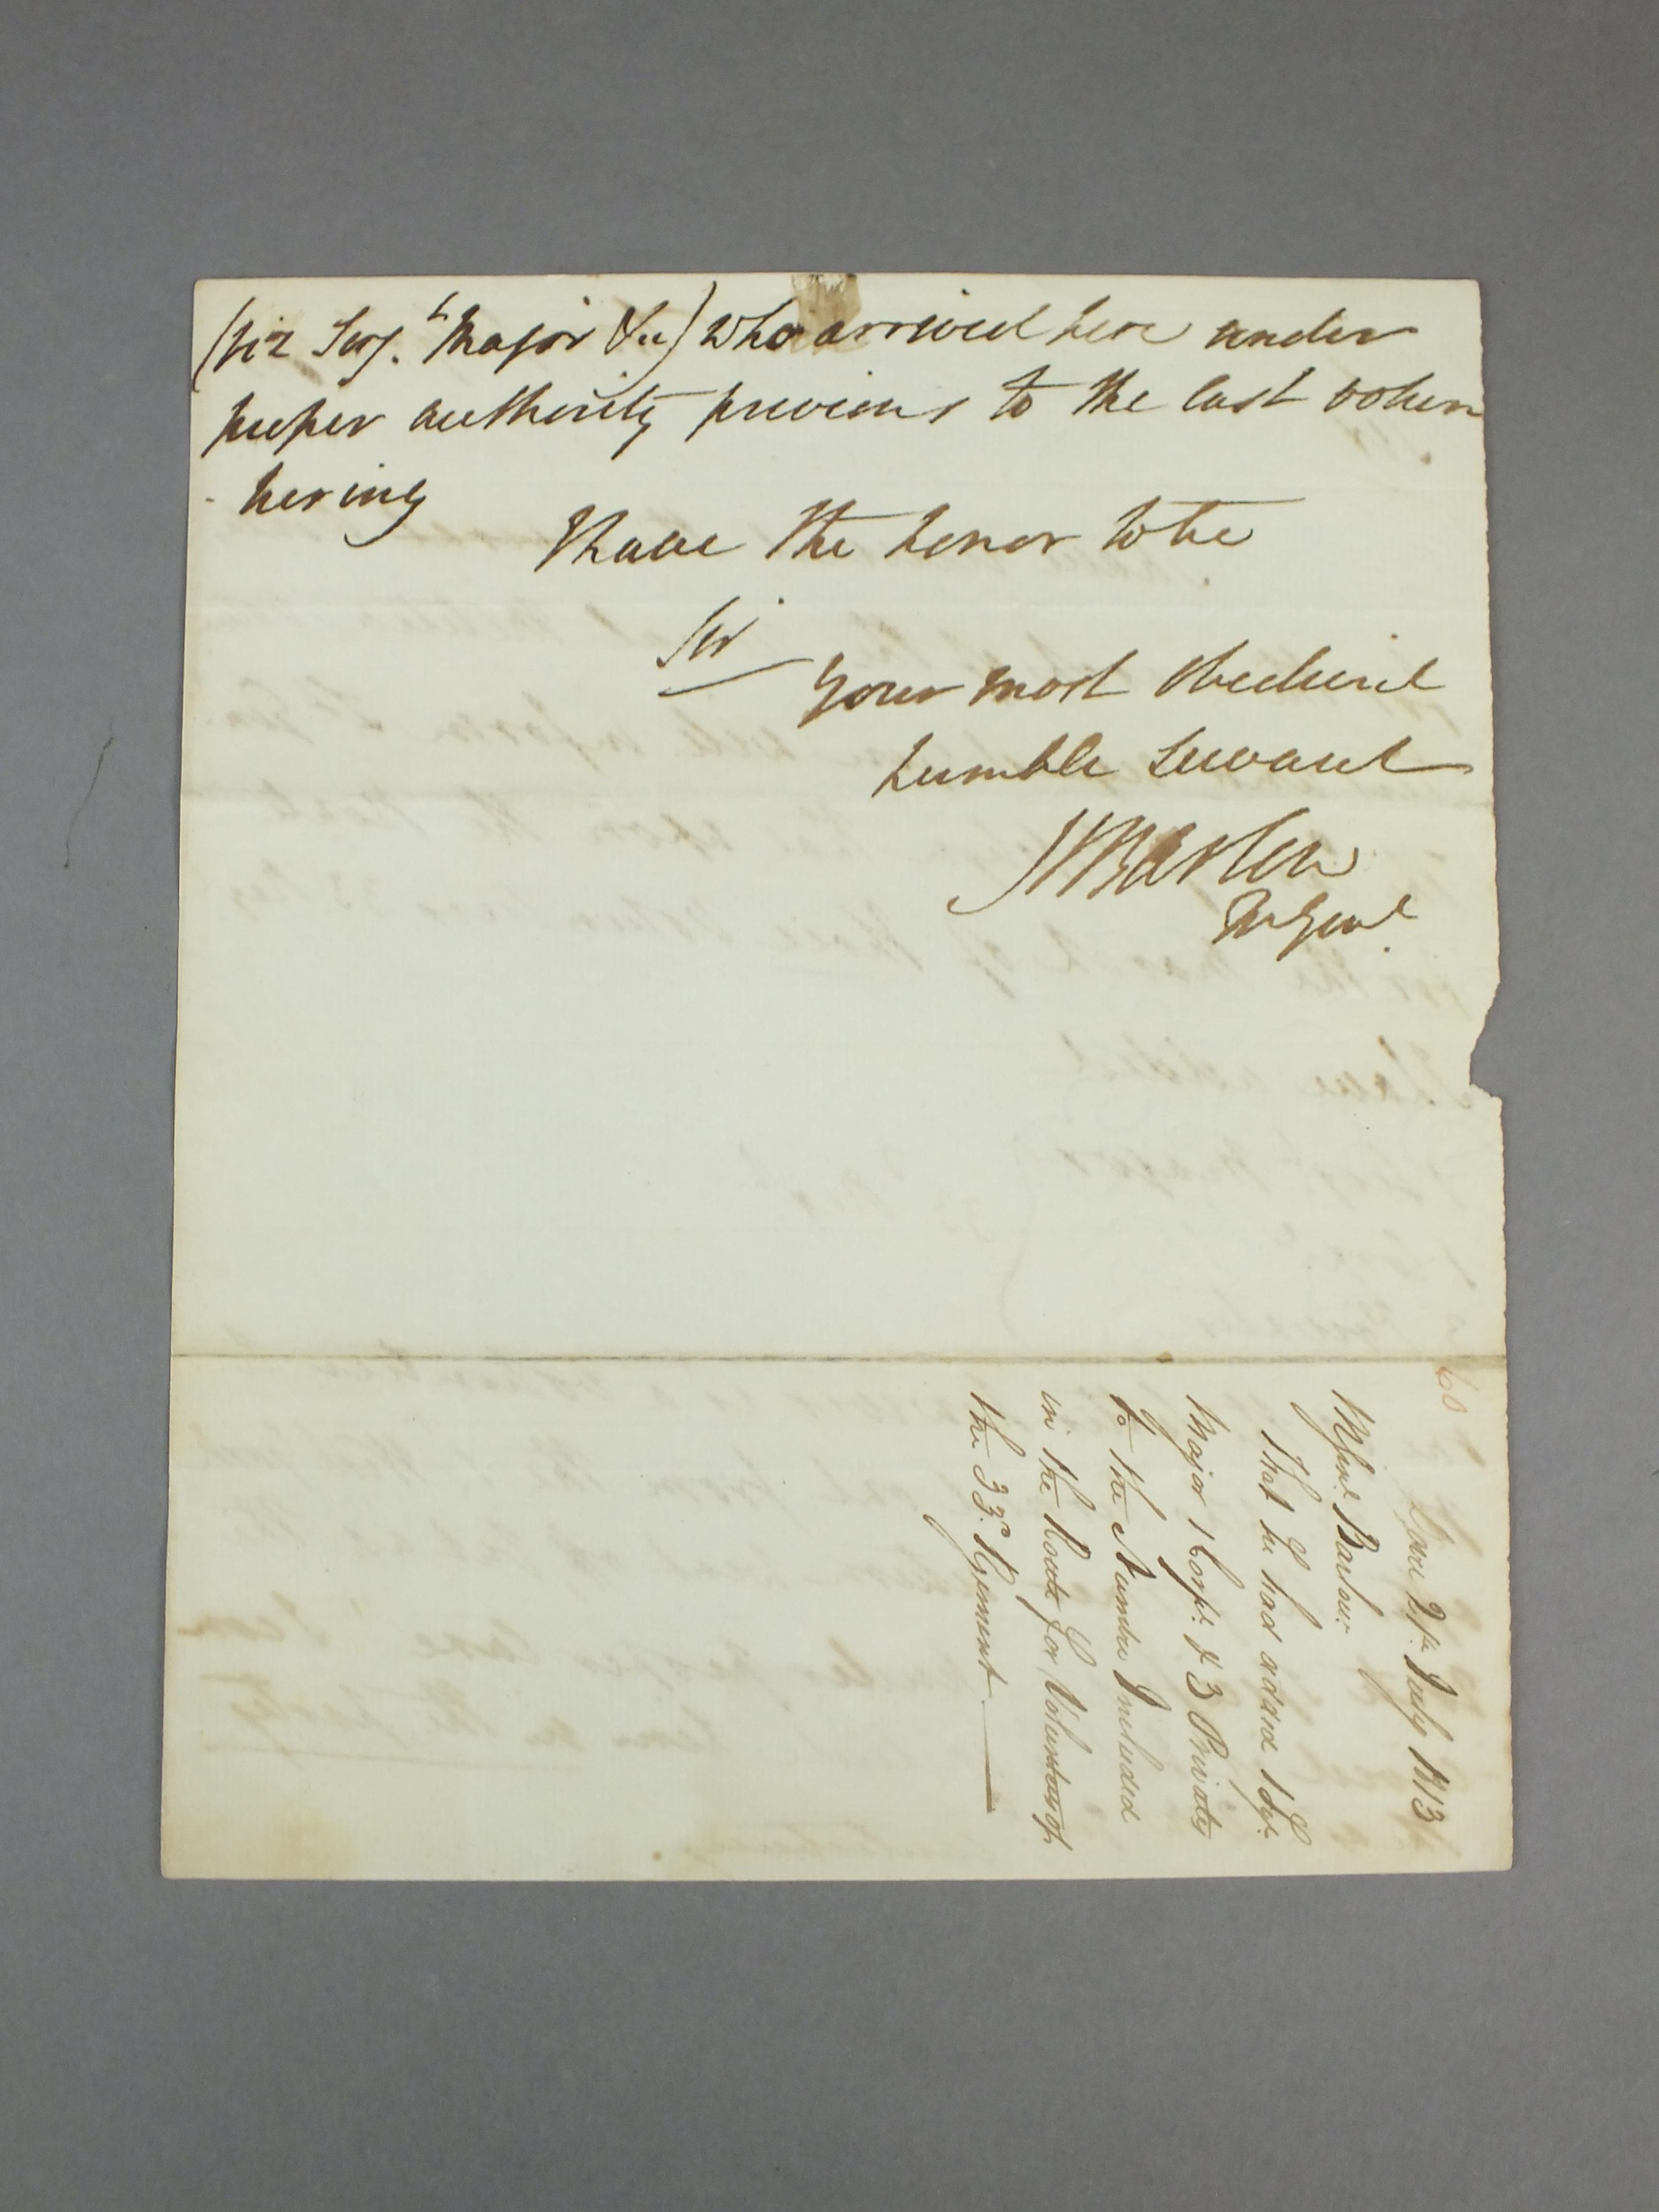 (viz Serj.t Major &c) who arrived here under
proper authority previous to the last volun
-teering
I have the honor to be
Sir
Your most obedient
humble Servant
M Genl
60
21st July 1813
M Genl Barlow
That he had added 1 Sgt
Major 1 Corpl & 3 Privates
to the Number Included
in the Route for Volunteers of
the 33d Regiment